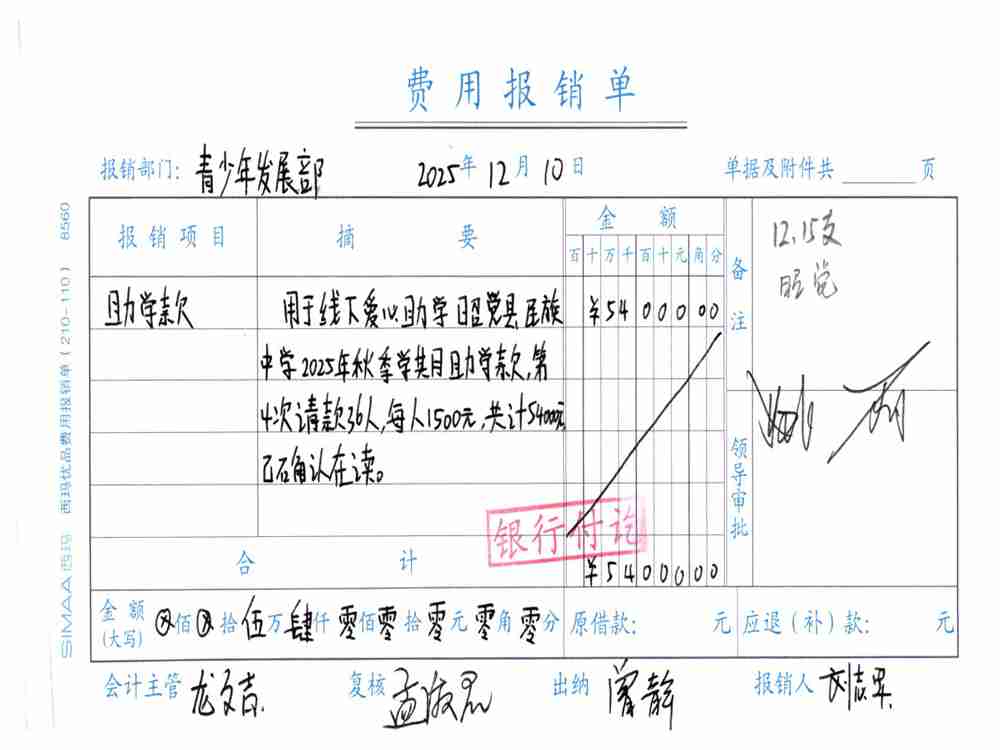 费用报销单
报销部门：青少年发展部 2025年12月10日 单据及附件共 页
报销项目 摘要 金额 备注 12.15支
百十万千百十元角分 昭觉
助学款 用于线下爱心助学昭觉县民族 ¥5400000
中学2025年秋季学期助学款，第
4次请款36人，每人1500元，共计54000元
已确认在读。
领导审批
银行付讫
合计 ¥5400000
金额（大写） ⊗佰⊗拾伍万肆仟零佰零拾零元零角零分 原借款： 元 应退（补）款： 元
会计主管 复核 出纳 曾静 报销人
SIMAA 西玛 西玛优品费用报销单（210-110） 8560